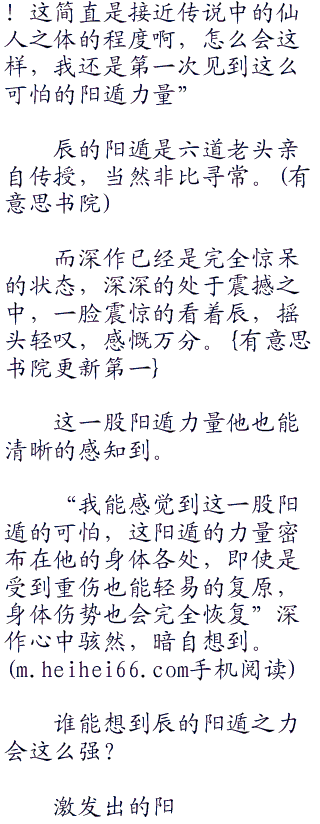 ！这简直是接近传说中的仙
人之体的程度啊，怎么会这
样，我还是第一次见到这么
可怕的阳遁力量”
辰的阳遁是六道老头亲
自传授，当然非比寻常。(有
意思书院)
而深作已经是完全惊呆
的状态，深深的处于震撼之
中，一脸震惊的看着辰，摇
头轻叹，感慨万分。{有意思
书院更新第一}
这一股阳遁力量他也能
清晰的感知到。
“我能感觉到这一股阳
遁的可怕，这阳遁的力量密
布在他的身体各处，即使是
受到重伤也能轻易的复原，
身体伤势也会完全恢复”深
作心中骇然，暗自想到。
(m.heihei66.com手机阅读)
谁能想到辰的阳遁之力
会这么强？
激发出的阳